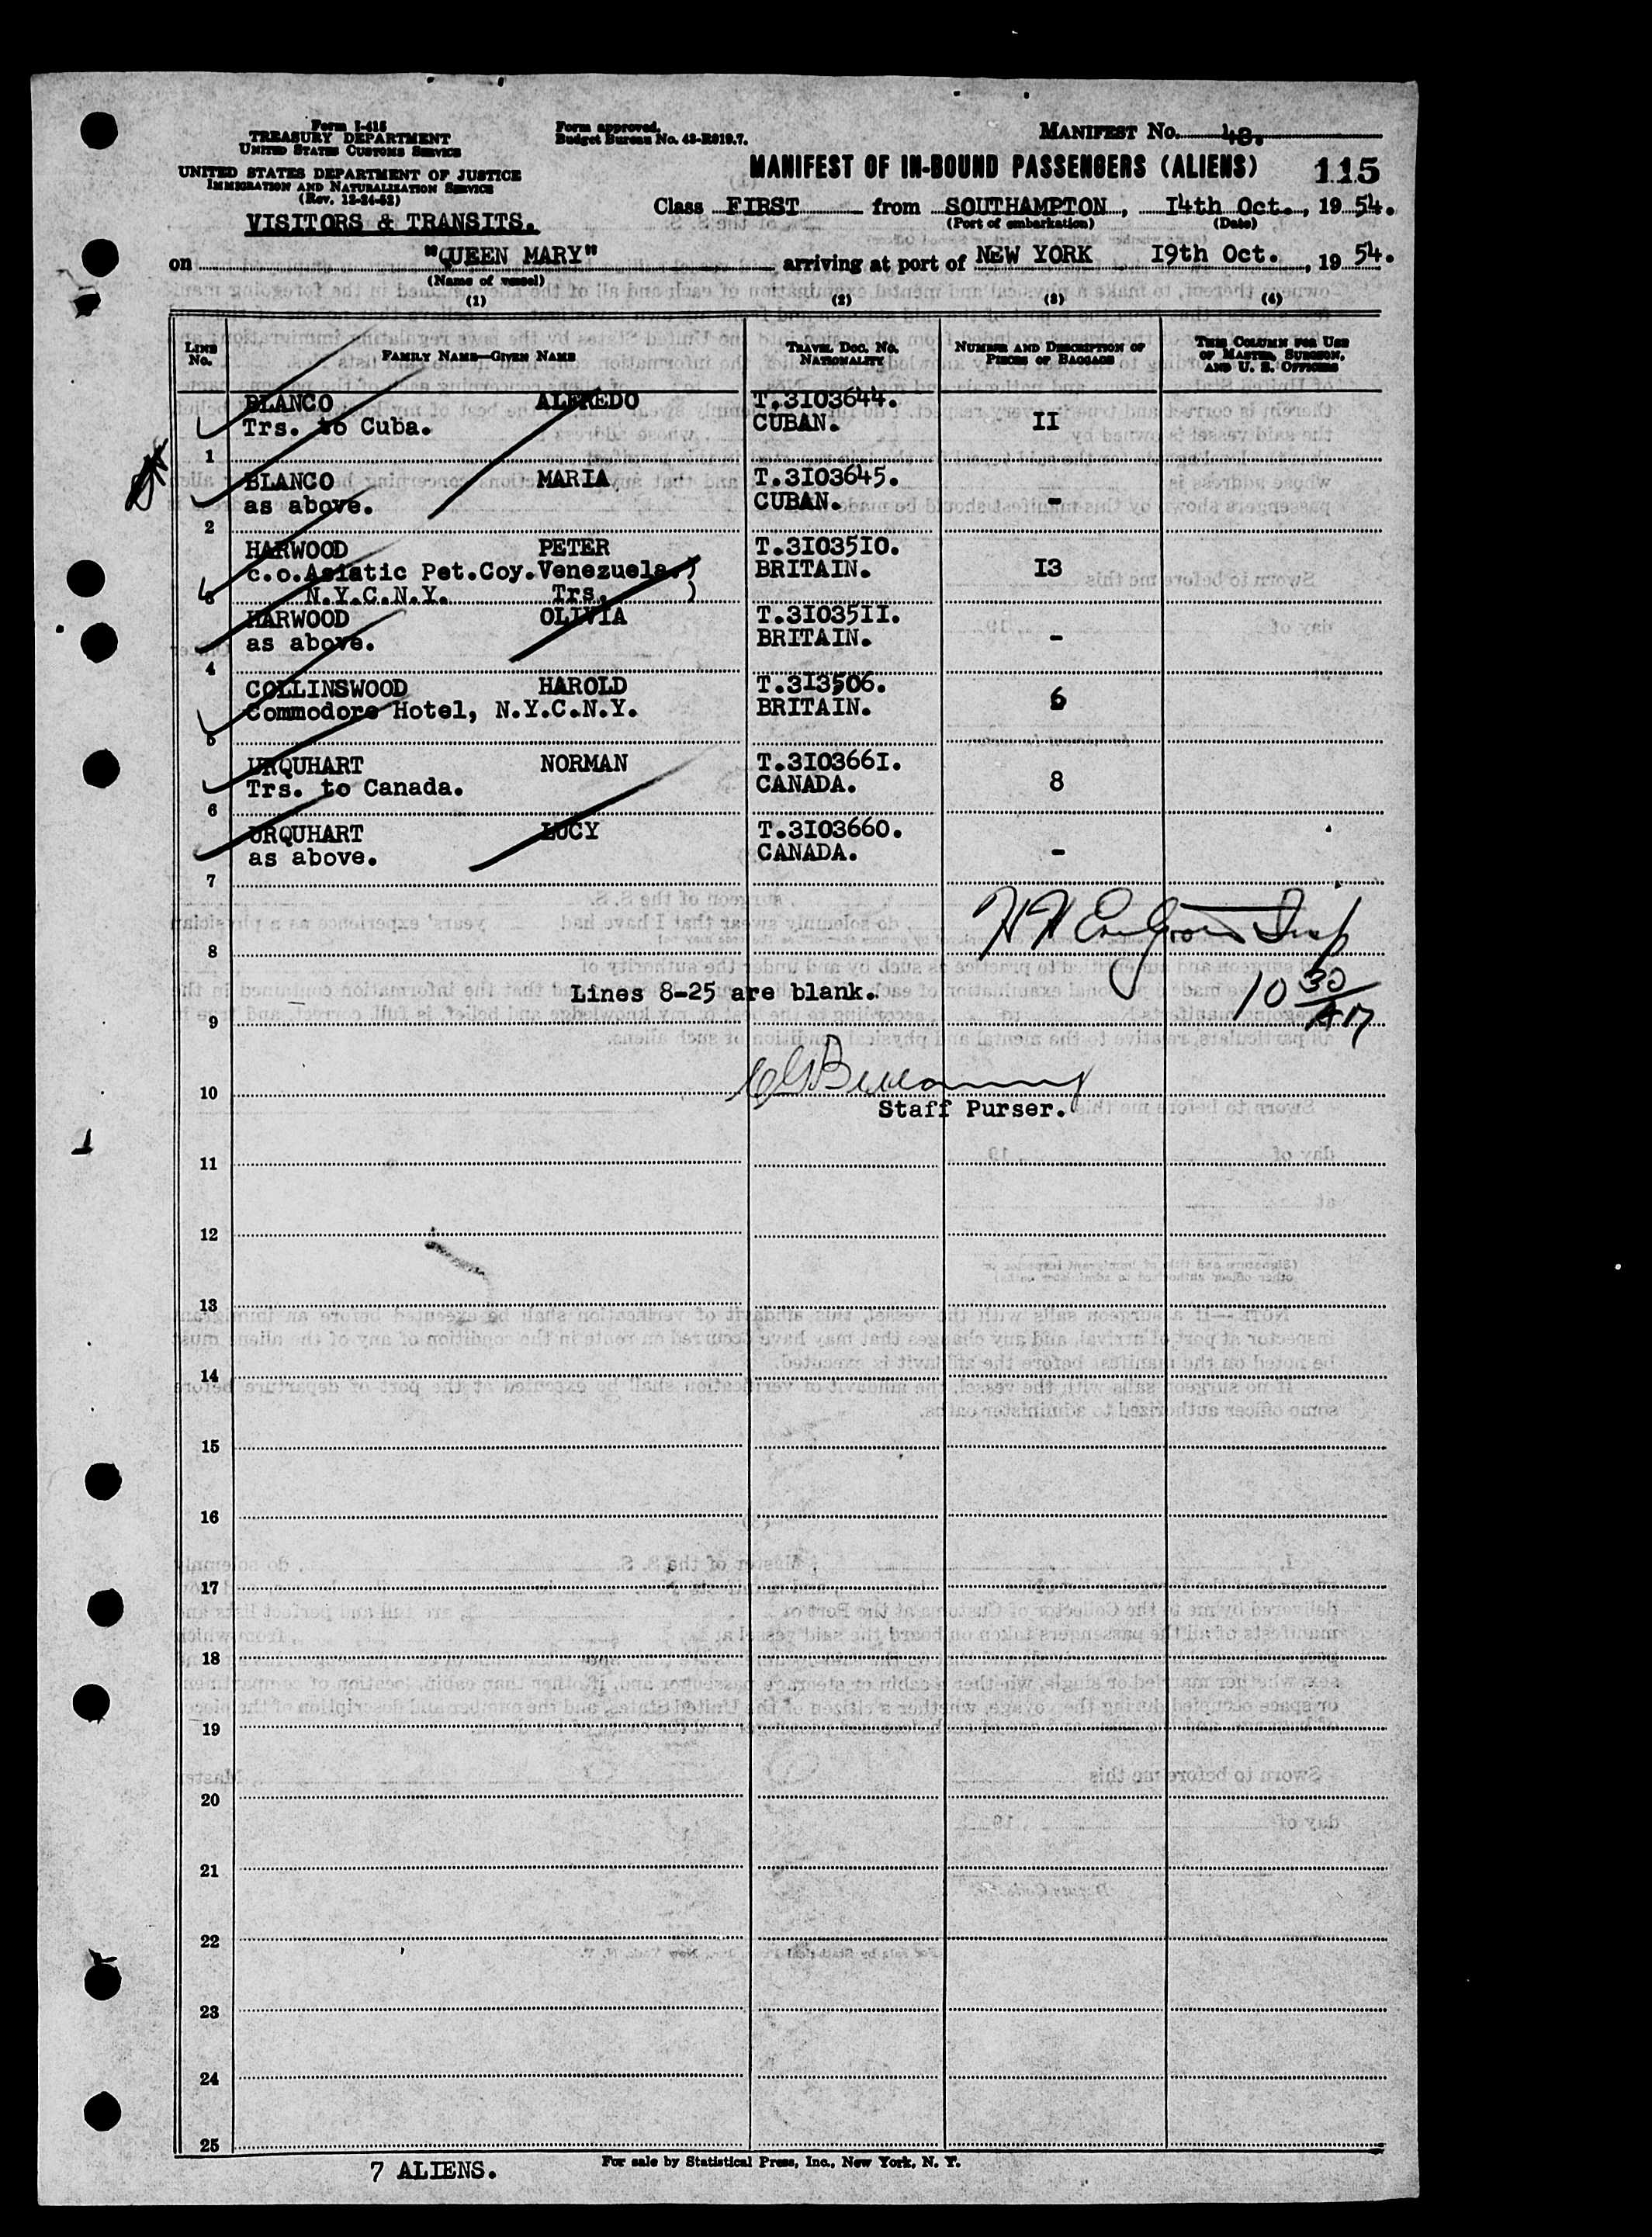 Form I-415
TREASURY DEPARTMENT
UNITED STATES CUSTOMS SERVICE
UNITED STATES DEPARTMENT OF JUSTICE
IMMIGRATION AND NATURALIZATION SERVICE
(Rev. 12-24-52)
VISITORS & TRANSITS.
Form approved.
Budget Bureau No. 43-R019.7.
MANIFEST No. 48.
MANIFEST OF IN-BOUND PASSENGERS (ALIENS) 115
Class FIRST from SOUTHAMPTON, I4th Oct., 19 54.
(Port of embarkation) (Date)
on "QUEEN MARY" arriving at port of NEW YORK I9th Oct., 19 54.
(Name of vessel)
(1) (2) (3) (4)
LINE No. FAMILY NAME—GIVEN NAME TRAVEL DOC. NO. NATIONALITY NUMBER AND DESCRIPTION OF PIECES OF BAGGAGE THIS COLUMN FOR USE OF MASTER, SURGEON, AND U. S. OFFICERS
BLANCO ALFREDO T.3I03644.
Trs. to Cuba. CUBAN. II
1
BLANCO MARIA T.3I03645.
as above. CUBAN. -
2
HARWOOD PETER T.3I035I0.
c.o.Asiatic Pet.Coy.Venezuela.) BRITAIN. I3
3 N.Y.C.N.Y. Trs. )
HARWOOD OLIVIA T.3I035II.
as above. BRITAIN. -
4
COLLINSWOOD HAROLD T.3I3506.
Commodore Hotel, N.Y.C.N.Y. BRITAIN. 6
5
URQUHART NORMAN T.3I0366I.
Trs. to Canada. CANADA. 8
6
URQUHART LUCY T.3I03660.
as above. CANADA. -
7
8
Lines 8-25 are blank. 10 30
9 AM
10
Staff Purser.
11
12
13
14
15
16
17
18
19
20
21
22
23
24
25
7 ALIENS. For sale by Statistical Press, Inc., New York, N. Y.